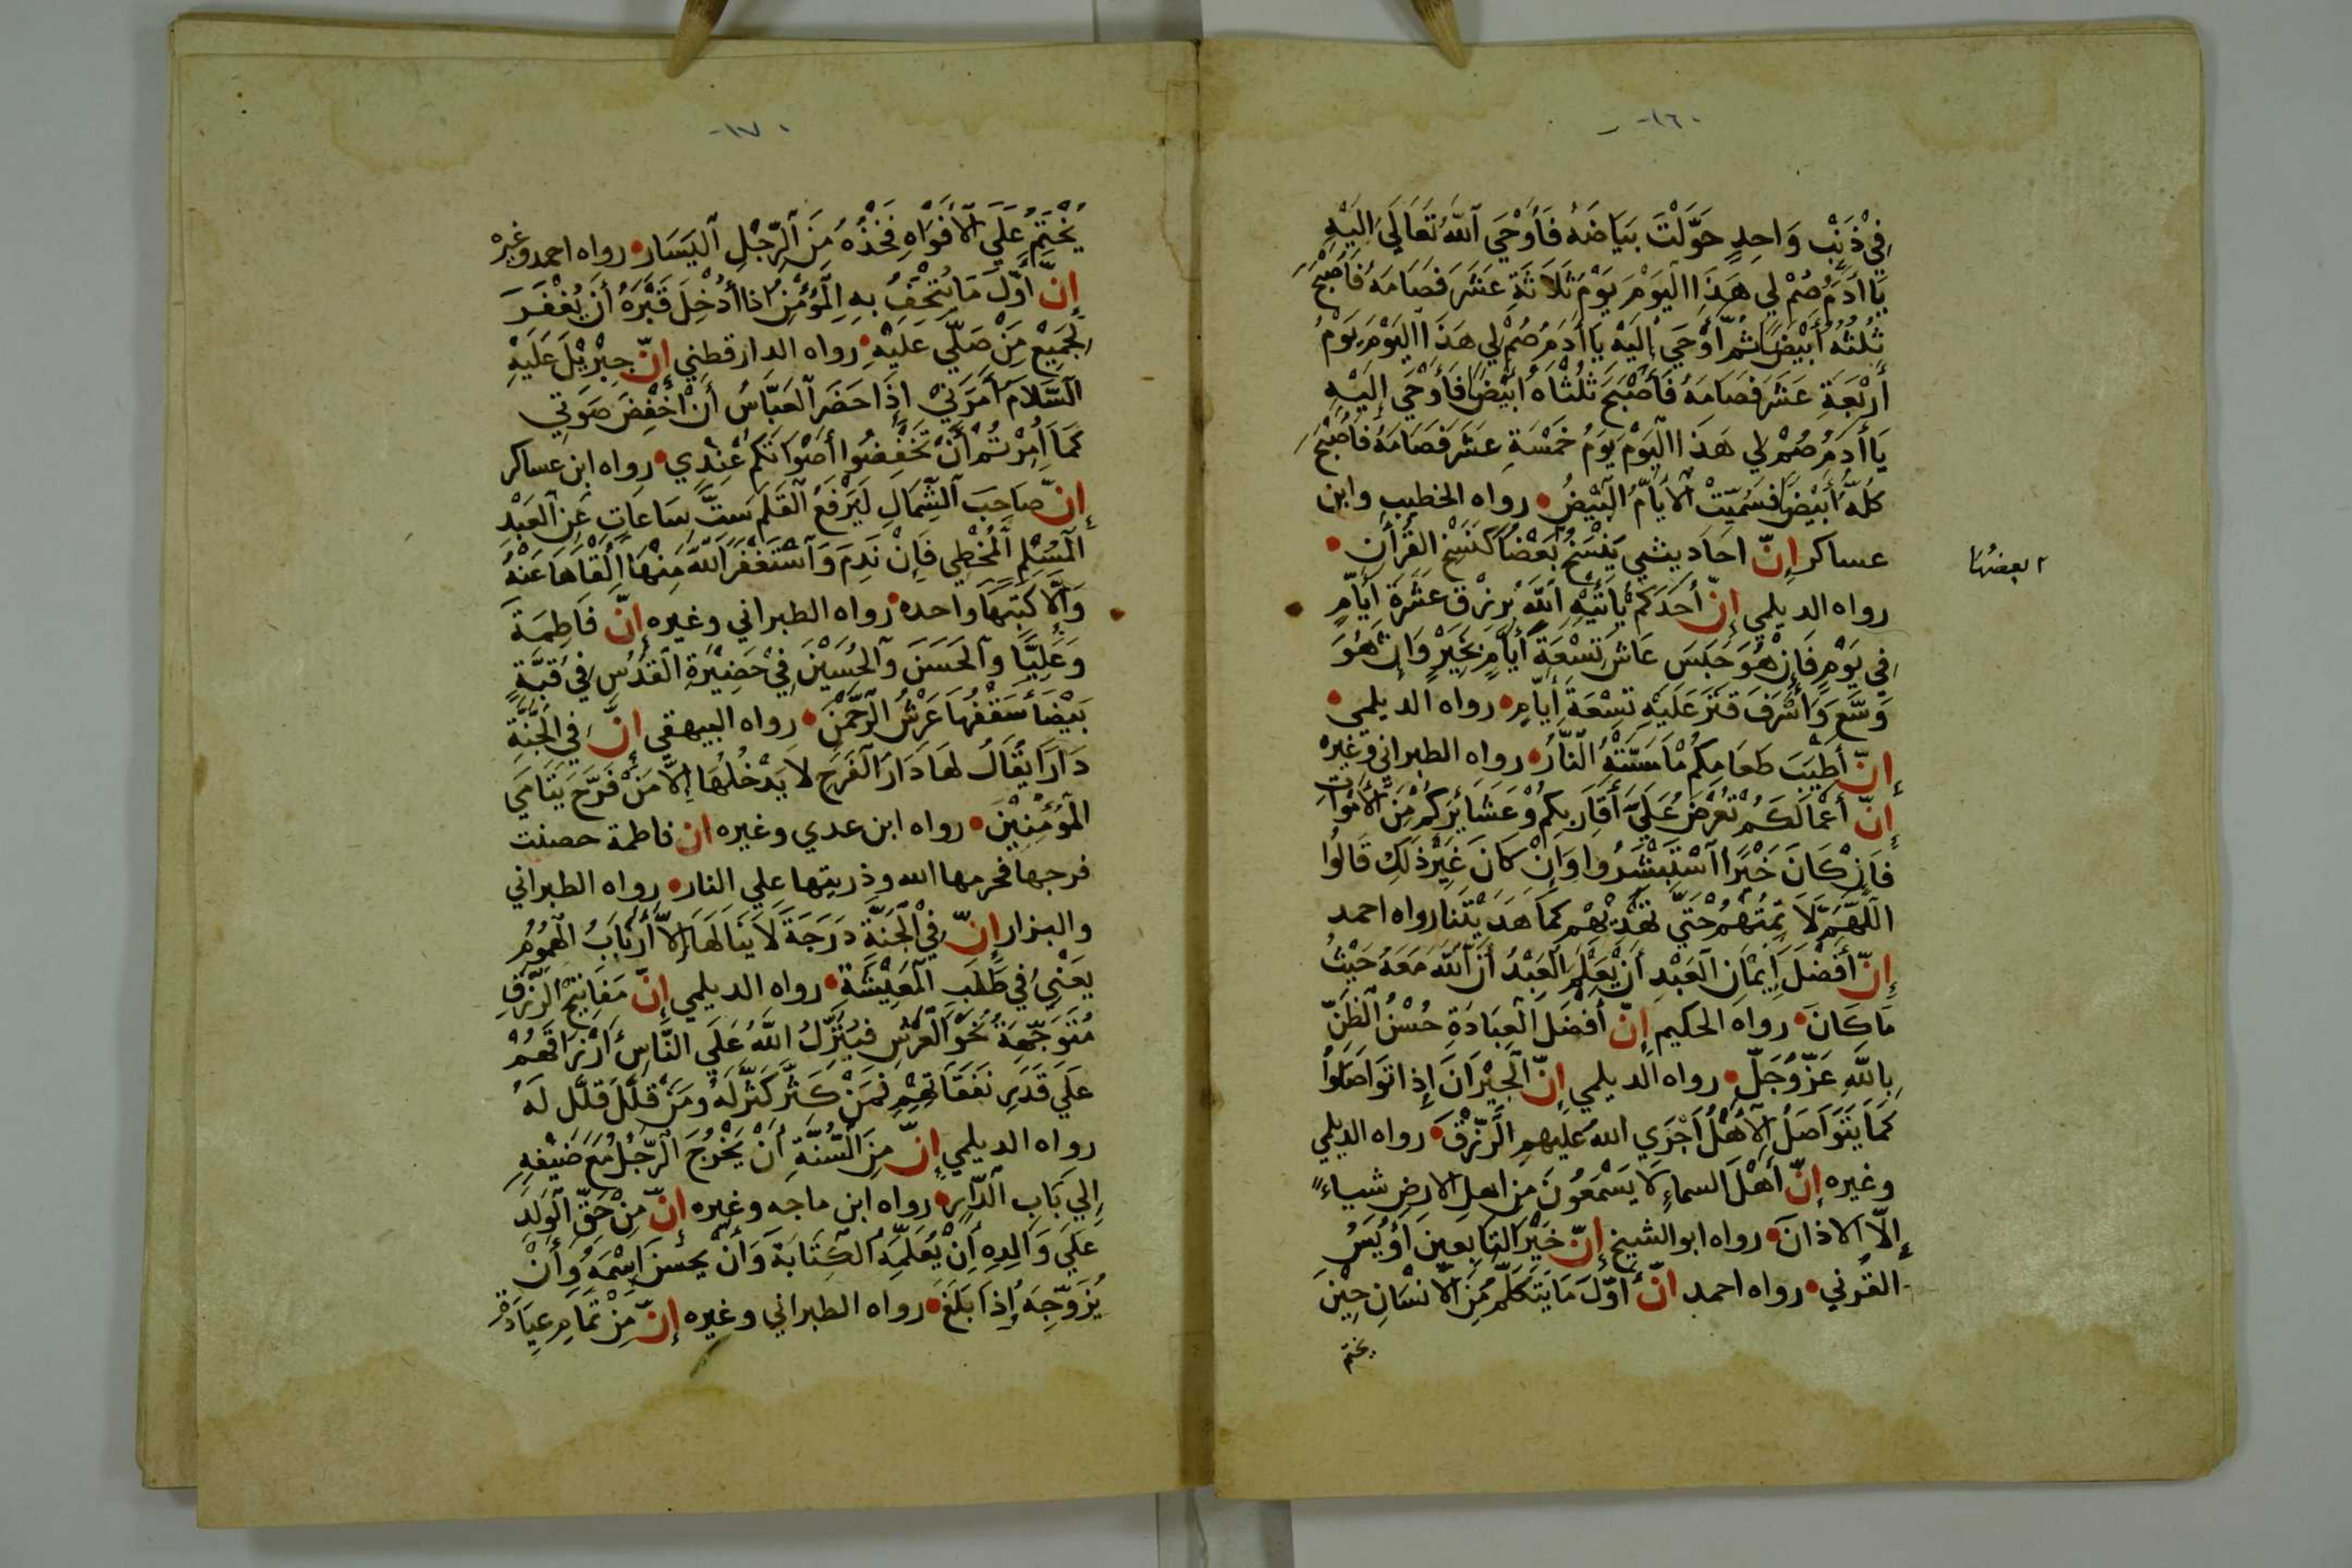 -١٦٠
فِي ذَنْبٍ وَاحِدٍ حَوَّلْتَ بَيَاضَهُ فَأَوْحَي اللَّهُ تَعَالَى إِلَيْهِ
يَا أَدَمُ صُمْ لِي هَذَا الْيَوْمَ يَوْمَ ثَلَاثَةِ عَشَرَ فَصَامَهُ فَأَصْبَحَ
ثُلُثُهُ أَبْيَضَ ثُمَّ أَوْحَي إِلَيْهِ يَا أَدَمُ صُمْ لِي هَذَا الْيَوْمَ يَوْمَ
أَرْبَعَةِ عَشَرَ فَصَامَهُ فَأَصْبَحَ ثُلُثَاهُ أَبْيَضَ فَأَوْحَي إِلَيْهِ
يَا أَدَمُ صُمْ لِي هَذَا الْيَوْمَ يَوْمَ خَمْسَةِ عَشَرَ فَصَامَهُ فَأَصْبَحَ
كُلُّهُ أَبْيَضَ فَسُمِّيَتْ الْأَيَّامُ الْبِيْضُ • رواه الخطيب وابن
عساكر إِنَّ احَاديثي يَنْسَخُ بَعْضًا كَنَسْخِ القُرْأَن •
بعضها
رواه الديلمي إِنَّ أَحَدَكُمْ يَأْتِيْهِ اللَّهُ بُرِزْقِ عَشَرَةِ أَيَّامٍ
فِي يَوْمٍ فَإِنْ هُوَ حَبَسَ عَاشَ تِسْعَةَ أَيَّامٍ بِخَيْرٍ وَإِنْ هُوَ
وَسَّعَ وَأَسْرَفَ قَتَرَ عَلَيْهِ تِسْعَةَ أَيَّامٍ • رواه الديلمي •
إِنَّ أَطْيَبَ طَعَامِكُمْ مَا مَسَّتْهُ النَّارُ • رواه الطبراني وغيره
إِنَّ أَعْمَالَكُمْ تُعْرَضُ عَلَي أَقَارِبِكُمْ وَعَشَائِرِكُمْ مِنَ الْأَمْوَاتِ
فَإِنْ كَانَ خَيْرًا اسْتَبْشَرُوا وَإِنْ كَانَ غَيْرَ ذَلِكَ قَالُوا
اللَّهُمَّ لَا تُمِتْهُمْ حَتَّي تَهْدِيْهِمْ كَمَا هَدَيْتَنَا رواه احمد
إِنَّ أَفْضَلَ إِيْمَانِ الْعَبْدِ أَنْ يَعْلَمَ الْعَبْدُ أَنَّ اللَّهَ مَعَهُ حَيْثُ
مَا كَانَ • رواه الحكيم إِنَّ أَفْضَلَ الْعِبَادَةِ حُسْنُ الظَّنِّ
بِاللَّهِ عَزَّ وَجَلَّ • رواه الديلمي إِنَّ الْجِيْرَانَ إِذَا تَوَاصَلُوا
كَمَا يَتَوَاصَلُ الْأَهْلُ أَجْرَي اللَّهُ عَلَيْهِمِ الرِّزْقَ • رواه الديلمي
وغيره إِنَّ أَهْلَ السماءِ لَا يَسْمَعُوْنَ مِن اهلِ الارضِ شياءً
إِلَّا الاذانَ • رواه ابو الشيخ إِنَّ خَيْرَ التَّابِعِيْنَ أُوَيْسُ
القَرني • رواه احمد انَّ أَوَّلَ مَا يَتَكَلَّمُ مِنَ الْإِنْسَانِ حِيْنَ
يختم
-١٧٠
يُخْتَمُ عَلَي الْأَفْوَاهِ فَخِذُهُ مِنَ الرِّجْلِ الْيَسَار • رواه احمد وغيره
إِنَّ أَوَّلَ مَا يُتْحَفُ بِهِ الْمُؤْمِنُ اذا أُدْخِلَ قَبْرَهُ أَنْ يُغْفَرَ
لِجَمِيْعِ مَنْ صَلَّي عَلَيْهِ • رواه الدارقطني إِنَّ جِبْرِيْلَ عَلَيْهِ
السَّلَامُ أَمَرَنِيْ إِذَا حَضَرَ الْعَبَّاسُ أَنْ أَخْفِضَ صَوْتِي
كَمَا أُمِرْتُمْ أَنْ تَخْفِضُوا أَصْوَاتَكُمْ عِنْدِي • رواه ابن عساكر
إِنَّ صَاحِبَ الشِّمَالِ لَيَرْفَعُ الْقَلَمَ سِتَّ سَاعَاتٍ عَنِ الْعَبْدِ
الْمُسْلِمِ الْمُخْطِي فَإِنْ نَدِمَ وَاسْتَغْفَرَ اللَّهَ مِنْهَا أَلْقَاهَا عَنْهُ
وَإِلَّا كَتَبَهَا واحده • رواه الطبراني وغيره إِنَّ فَاطِمَةَ
وَعَلِيًّا وَالْحَسَنَ وَالْحُسَيْنَ فِي حَضِيْرَةِ الْقُدُسِ فِي قُبَّةٍ
بَيْضَاءَ سَقْفُهَا عَرْشُ الرَّحْمَنِ • رواه البيهقي إِنَّ فِي الْجَنَّةِ
دَارًا يُقَالُ لَهَا دَارَ الْفَرَحِ لَا يَدْخُلُهَا إِلَّا مَنْ فَرَّحَ يَتَامَي
الْمُؤْمِنِيْنَ • رواه ابن عدي وغيره ان فاطمة حصنت
فرجها فحرمها الله وذريتها علي النار • رواه الطبراني
والبزار إِنَّ فِي الْجَنَّةِ دَرَجَةً لَا يَنَالُهَا إِلَّا أَرْبَابُ الْهُمُوْمِ
يَعْنِي فِي طَلَبِ الْمَعِيْشَةِ • رواه الديلمي إِنَّ مَفَاتِيْحَ الرِّزْقِ
مُتَوَجِّهَةٌ نَحْوَ الْعَرْشِ فَيُنَزِّلُ اللَّهُ عَلَي النَّاسِ أَرْزَاقَهُمْ
عَلَي قَدْرِ نَفَقَاتِهِمْ فَمَنْ كَثَّرَ كُثِّرَ لَهُ وَمَنْ قَلَّلَ قُلِّلَ لَهُ
رواه الديلمي إِنَّ مِنَ السُّنَّةِ أَنْ يَخْرُجَ الرَّجُلُ مَعَ ضَيْفِهِ
إِلَي بَابِ الدَّارِ • رواه ابن ماجه وغيره إِنَّ مِنْ حَقِّ الْوَلَدِ
عَلَي وَالِدِهِ أَنْ يُعَلِّمَهُ الْكِتَابَةَ وَأَنْ يُحْسِنَ اسْمَهُ وَأَنْ
يُزَوِّجَهُ إِذَا بَلَغَ • رواه الطبراني وغيره إِنَّ مِنْ تَمَامِ عِيَادَةِ